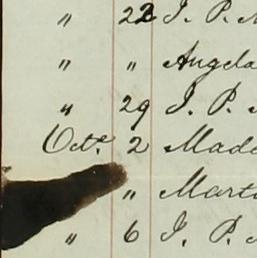 " 22 J. P.
" " Angela
" 29 J. P.
Octr. 2 Made
" Mart
" 6 J. P.